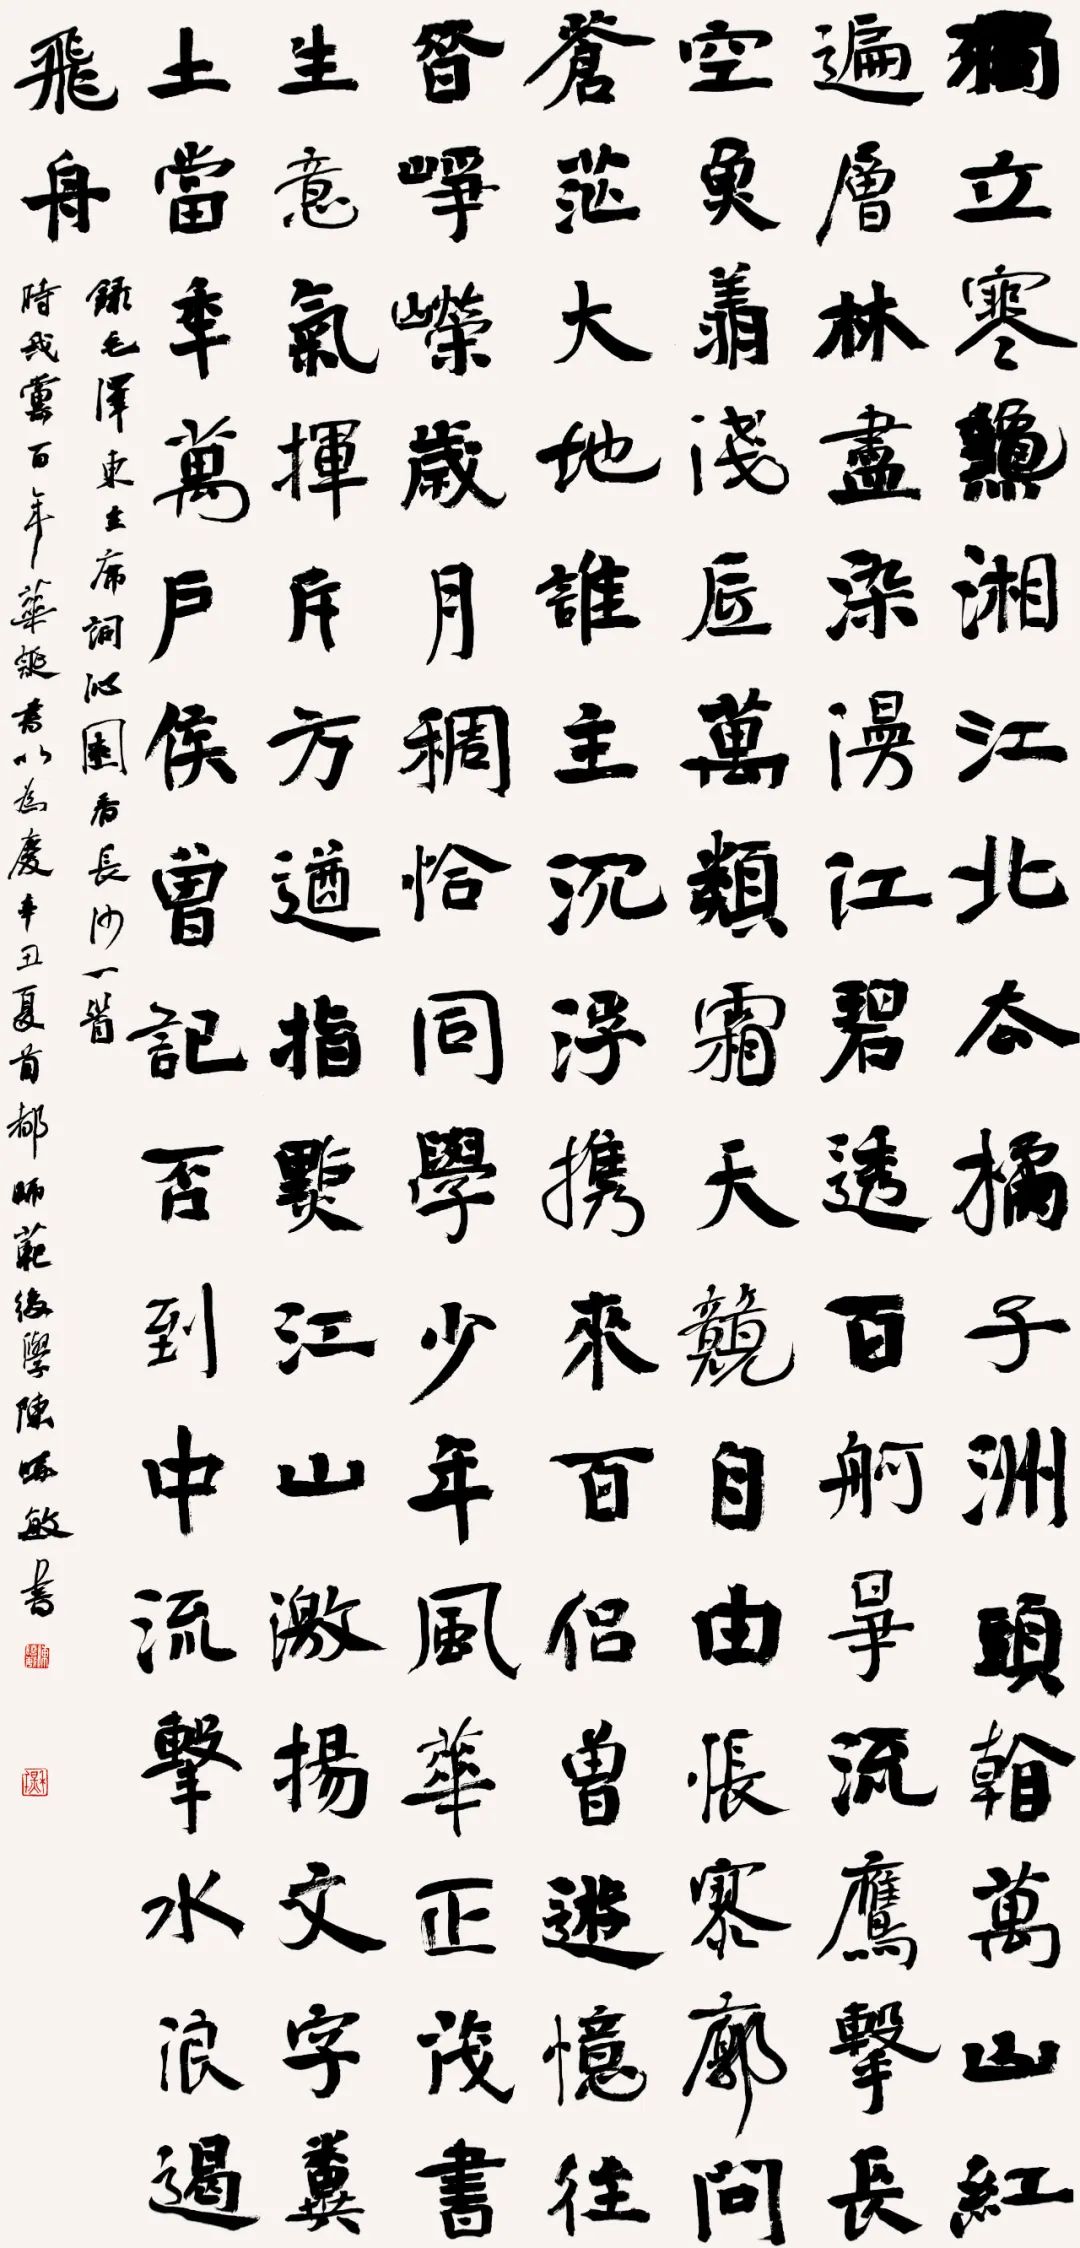 獨立寒龝湘江北去橘子洲頭看萬山紅
遍層林盡染漫江碧透百舸爭流鷹擊長
空魚翔淺底萬類霜天競自由悵寥廓問
蒼茫大地誰主沉浮携來百侶曾遊憶往
昔崢嶸歲月稠恰同學少年風華正茂書
生意氣揮斥方遒指點江山激揚文字糞
土當年萬戶侯曾記否到中流擊水浪遏
飛舟
錄毛澤東主席詞沁園春長沙一首
時我黨百年華誕書以為慶辛丑夏首都師範後學陳敏書